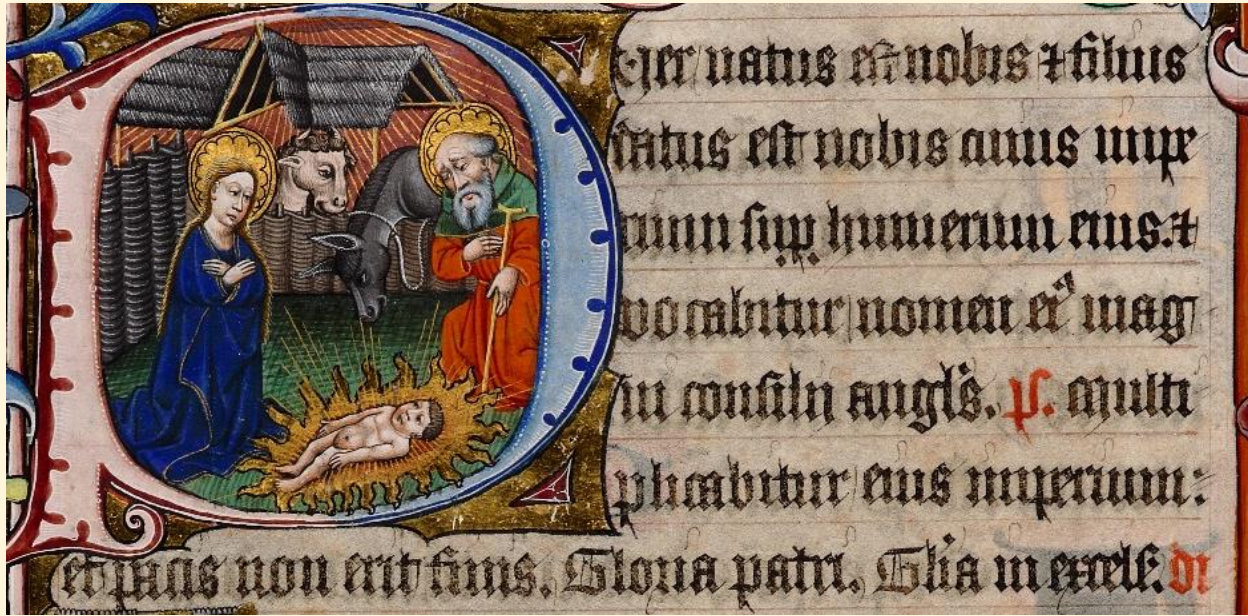 Puer natus est nobis ⁊ filius
datus est nobis cuius impe
rium sup humerum eius. ⁊
vocabitur nomen ei⁹ mag
ni consilij angl's. p̄s. Multi
plicabitur eius imperium:
et pacis non erit finis. Gloria patri. Gl'ia in excels. di